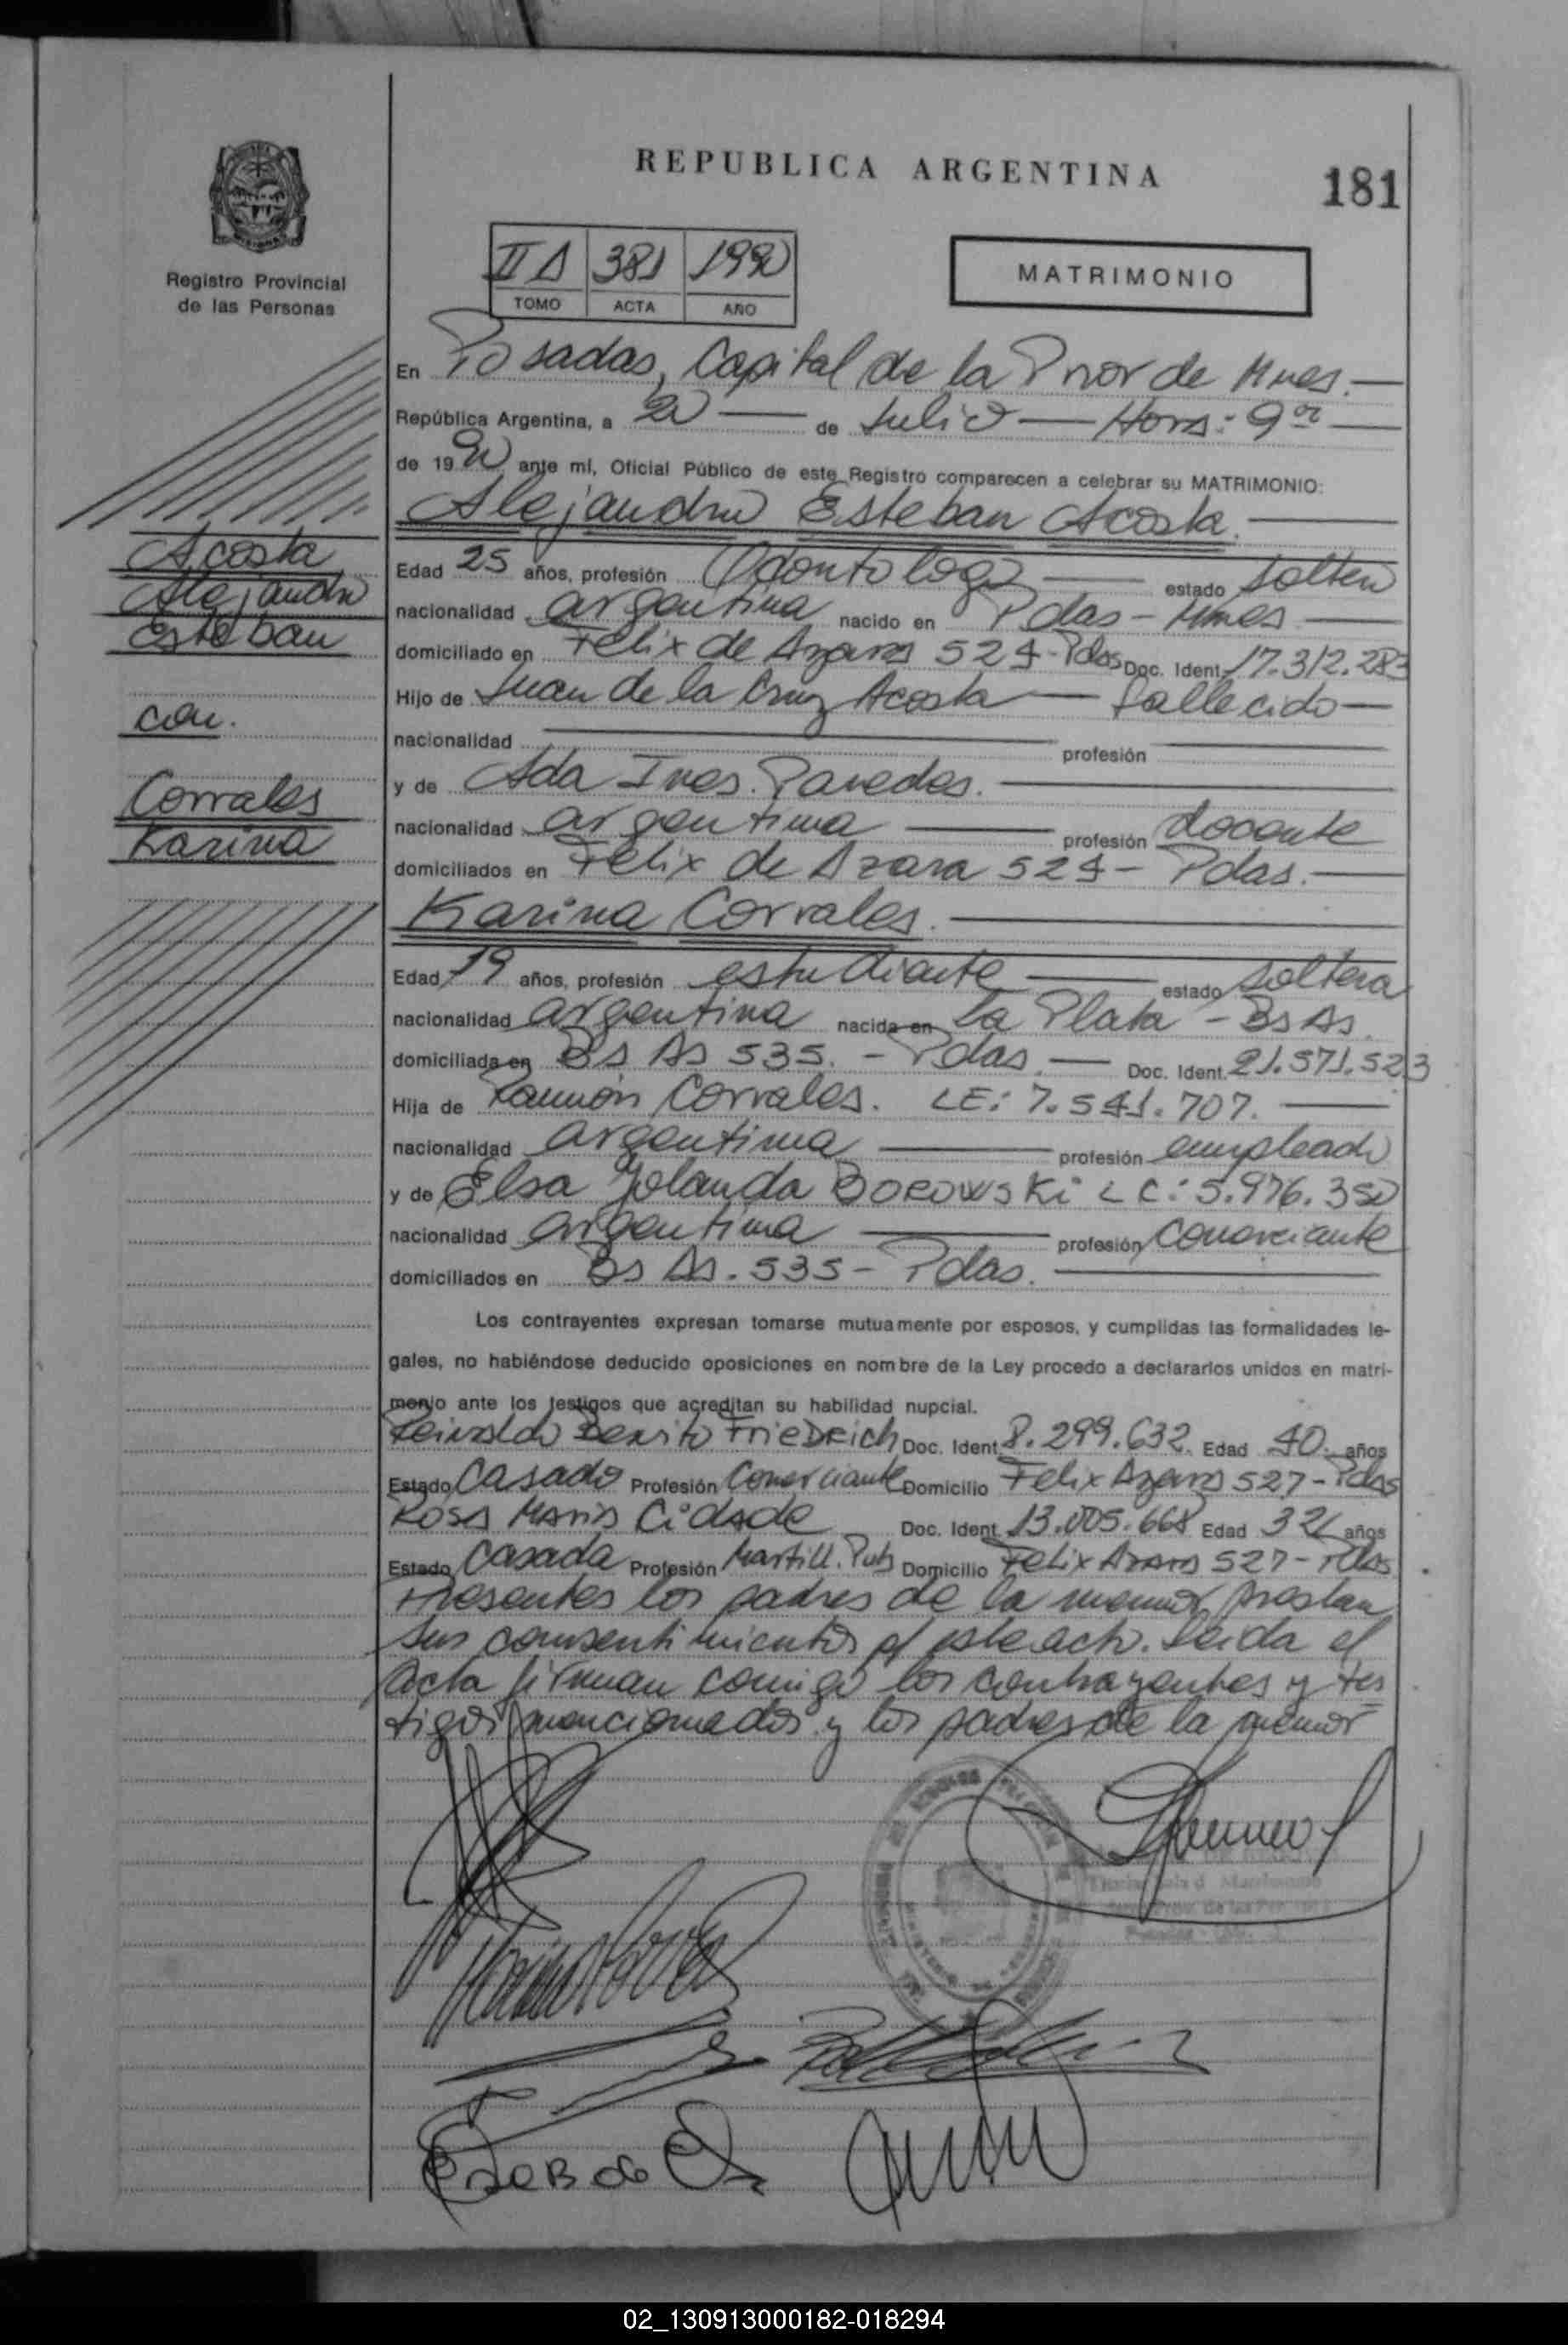 REPUBLICA ARGENTINA
181
Registro Provincial
de las Personas
II A 381 1990
TOMO ACTA AÑO
MATRIMONIO
En Posadas, Capital de la Prov de Mnes.
República Argentina, a 20 de Julio Hora: 9
de 1990 ante mí, Oficial Público de este Registro comparecen a celebrar su MATRIMONIO:
Alejandro Esteban Acosta.
Acosta
Alejandro
Esteban
con.
Corrales
Karina
Edad 25 años, profesión Odontologo estado soltero
nacionalidad argentina nacido en Pdas - Mnes
domiciliado en Felix de Azara 524 - Pdas Doc. Ident. 17.312.283
Hijo de Juan de la Cruz Acosta fallecido
nacionalidad profesión
y de Ada Ines Paredes.
nacionalidad argentina profesión docente
domiciliados en Felix de Azara 524 - Pdas.
Karina Corrales.
Edad 19 años, profesión estudiante estado soltera
nacionalidad argentina nacida en La Plata - Bs As.
domiciliada en Bs As 535. - Pdas. Doc. Ident. 21.571.523
Hija de Ramón Corrales. LE: 7.541.707.
nacionalidad argentina profesión empleado
y de Elsa Yolanda Borowski LC: 5.976.350
nacionalidad argentina profesión comerciante
domiciliados en Bs As. 535 - Pdas.
Los contrayentes expresan tomarse mutuamente por esposos, y cumplidas las formalidades le-
gales, no habiéndose deducido oposiciones en nombre de la Ley procedo a declararlos unidos en matri-
monio ante los testigos que acreditan su habilidad nupcial.
Reinaldo Benito Friedrich Doc. Ident. 8.299.632. Edad 40. años
Estado Casado Profesión Comerciante Domicilio Felix Azara 527 - Pdas
Rosa Maria Cidade Doc. Ident. 13.005.668 Edad 32 años
Estado Casada Profesión Martill. Pub Domicilio Felix Azara 527 - Pdas
Presentes los padres de la menor prestan
sus consentimientos p/ este acto. Leida el
acta firman comigo los contrayentes y tes
tigos mencionados y los padres de la menor
02_130913000182-018294